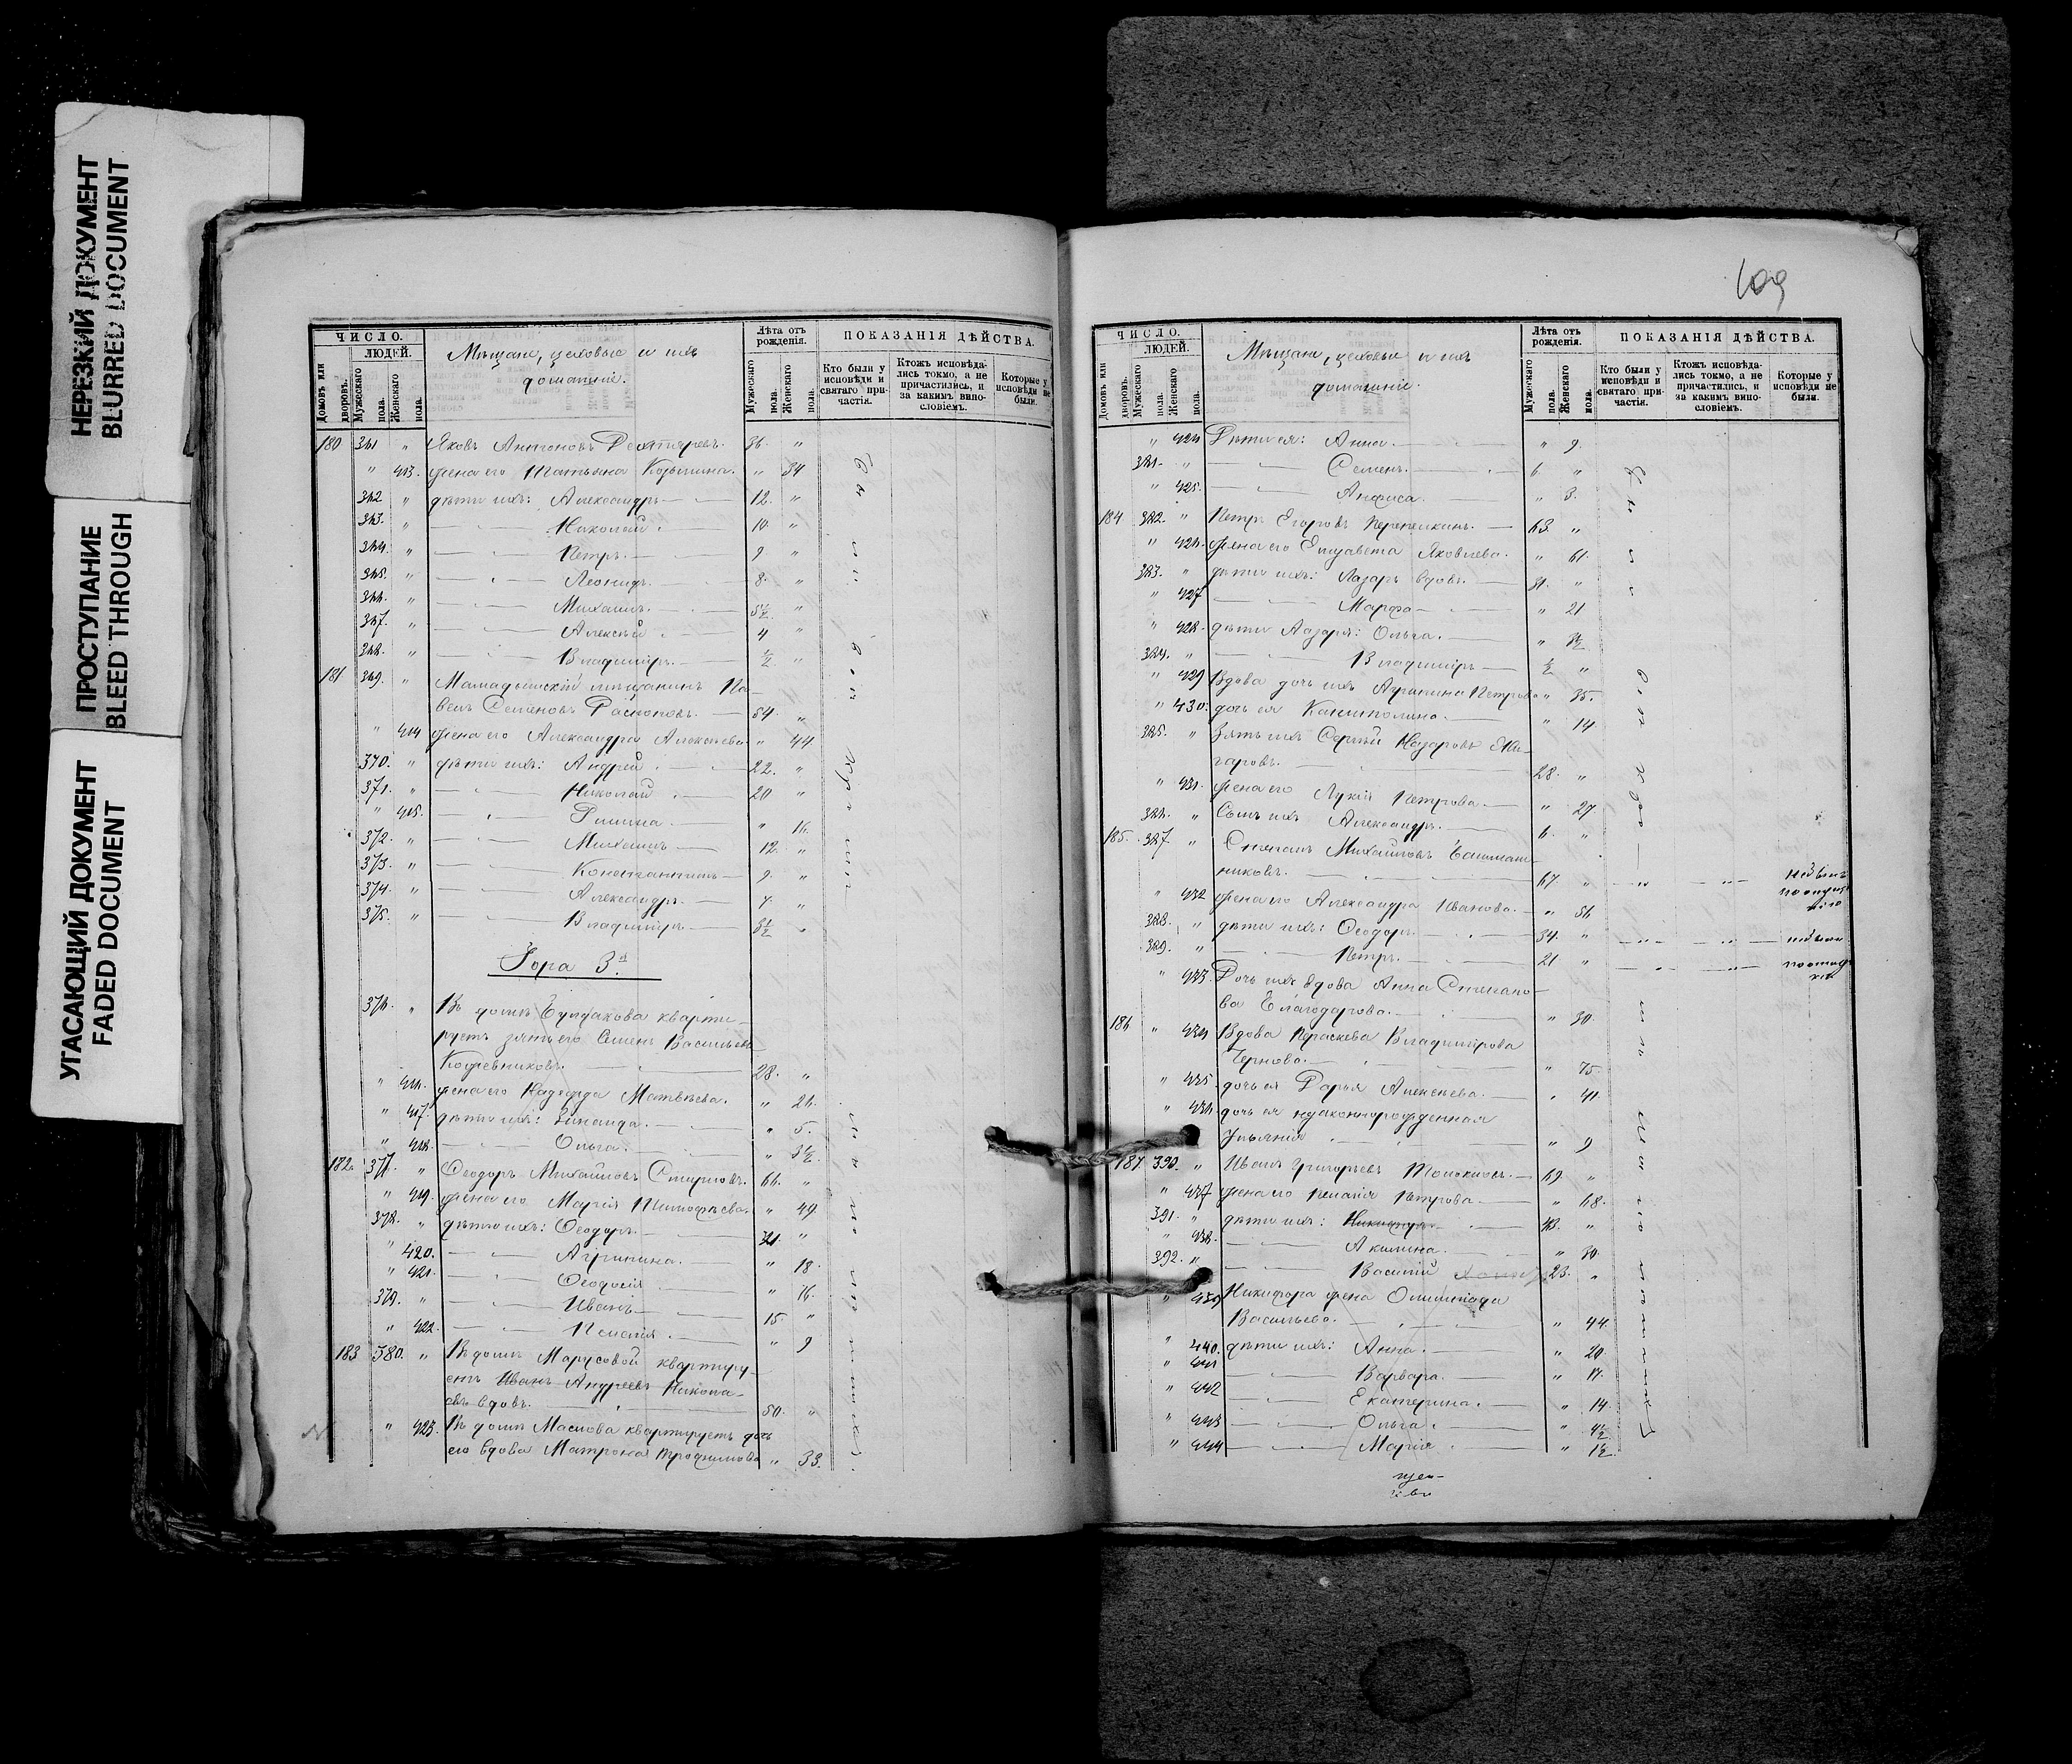 НЕРЕЗКИЙ ДОКУМЕНТ
BLURRED DOCUMENT
ПРОСТУПАНИЕ
BLEED THROUGH
УГАСАЮЩИЙ ДОКУМЕНТ
FADED DOCUMENT
ЧИСЛО.
ЛЮДЕЙ.
Домовъ или дворовъ.
Мужескаго пола.
Женскаго пола.
Мѣщане, цеховые и ихъ
домашніе.
Лѣта отъ рожденія.
Мужескаго пола.
Женскаго пола.
ПОКАЗАНІЯ ДѢЙСТВА.
Кто были у исповѣди и святаго причастія.
Ктожъ исповѣдались токмо, а не причастились, и за какимъ винословіемъ.
Которые у исповѣди не были.
180 Яковъ Антоновъ 36. "
" 413. жена его Татьяна Козьмина. " 34
362 " дѣти ихъ: Александръ 12. "
363. " Николай 10. "
364. " Петръ. 9 "
365. " Леонидъ. 8. "
366. " Михаилъ. 5½ "
367. " Алексѣй 4 "
368. " Владиміръ. ½ "
181 369. " Мамадышскій мѣщанинъ Па-
велъ Семеновъ 54. "
" 414 жена его Александра Алексѣева " 44.
370. " дѣти ихъ: Андрей 22. "
371. " Николай 20 "
" 415. " 16.
372. " Михаилъ 12. "
373. " Константинъ 9. "
374. " Александръ. 7. "
375. " Владиміръ 3½ "
Гора 3я
376. " Въ домѣ Булдакова кварти-
руетъ зять его Семенъ Васильевъ
Кожевниковъ. 28. "
" 416. жена его Надежда Матвѣева. " 26.
" 417. дѣти ихъ: Зинаида. " 5.
" 418. Ольга. " 3½.
182. 377. " Ѳеодоръ Михайловъ Смирновъ. 66. "
" 419. жена его Марія Тимофѣева. " 49
378. " дѣти ихъ: Ѳеодоръ. 21. "
" 420. Агрипина. " 18.
" 421. Ѳеодосія " 16.
379. " Иванъ 15. "
" 422. Пелагія. " 9
183 380. " Въ домѣ Марусовой квартиру-
етъ Иванъ Андреевъ Никола-
евъ вдовъ. 50. "
" 423. Въ домѣ Маслова квартируетъ дочь
его вдова Матрона " 33.
109
ЧИСЛО.
ЛЮДЕЙ.
Домовъ или дворовъ.
Мужескаго пола.
Женскаго пола.
Мѣщане, цеховые и ихъ
домашніе.
Лѣта отъ рожденія.
Мужескаго пола.
Женскаго пола.
ПОКАЗАНІЯ ДѢЙСТВА.
Кто были у исповѣди и святаго причастія.
Ктожъ исповѣдались токмо, а не причастились, и за какимъ винословіемъ.
Которые у исповѣди не были.
" 424 Дѣти ея: Анна. " 9.
381. " Семенъ. 6. "
" 425. Анфиса. " 3.
184 382. " Петръ Егоровъ Перепелкинъ. 63. "
" 426. жена его Елизавета Яковлева. " 61.
383. " дѣти ихъ: Лазарь вдовъ. 31. "
" 427 Марфа " 21
" 428. дѣти Лазаря: Ольга.
384. " Владиміръ ½ "
" 429 Вдова дочь ихъ Агрипина Петрова " 35.
" 430. дочь ея Капитолина. " 14
385. " Зять ихъ Сергѣй Назаровъ
28. "
" 431. жена его Лукія Петрова. " 27
386. " Сынъ ихъ Александръ. 6. "
185. 387 " Степанъ Михайловъ Башмаш-
никовъ. 67. "
" 432 жена его Александра Иванова. " 56
388. " дѣти ихъ: Ѳеодоръ. 34. "
389. " Петръ. 21 "
" 433. Дочь ихъ вдова Анна Степано-
ва Благодарова. " 30.
186 " 434 Вдова Параскева Владимірова
Чернова. " 75.
" 435. дочь ея Дарья Алексѣева. " 41.
" 436. дочь ея незаконнорожденная
Ульянія " 9
187 390. " Иванъ Григорьевъ 69. "
" 437 жена его Пелагія Петрова " 68.
391. " дѣти ихъ: Никифоръ. "
" 438. Акилина. " 30.
392. " Василій 23. "
" 439 Никифора жена Олимпіада
Васильева. " 44.
" 440. дѣти ихъ: Анна. " 20.
" 441 Варвара. " 17.
" 442 Екатерина. " 14.
" 443 Ольга. " 4½
" 444 Марія " 1½